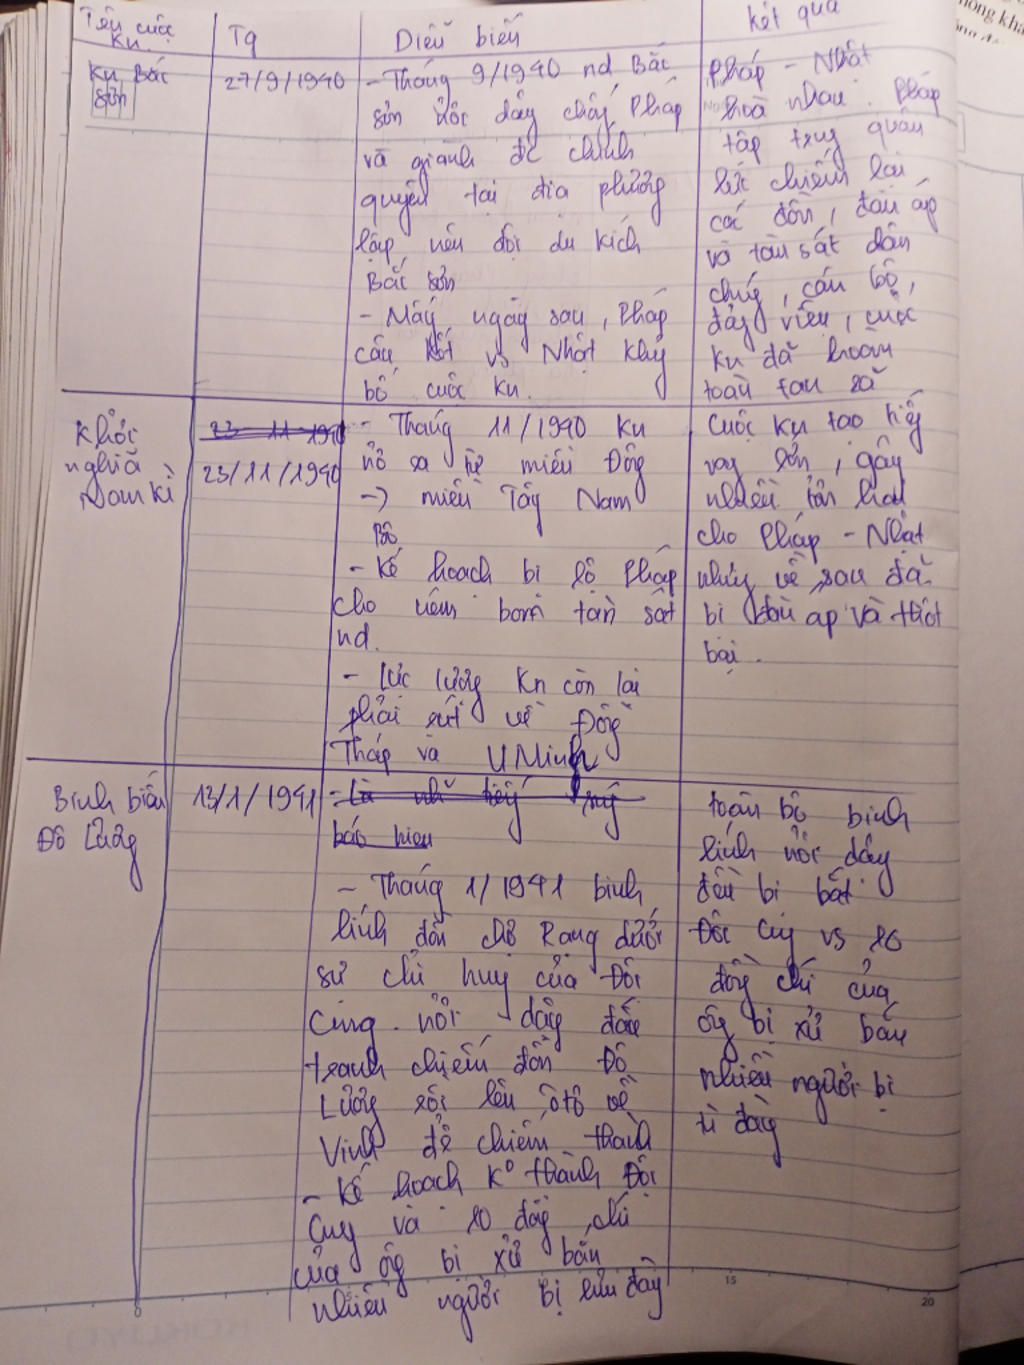 Tên cuộc
kn.
Tg
Diễn biến
kết quả
Kn Bắc
Sơn
27/9/1940
- Tháng 9/1940 nd Bắc
Sơn nổi dậy chống Pháp
và giành đc chính
quyền tại địa phương
lập nên đội du kích
Bắc Sơn
- Mấy ngày sau, Pháp
câu kết vs Nhật khủng
bố cuộc kn.
Pháp - Nhật
hoà nhau. Pháp
tập trung quân
lực chiếm lại
các đồn, đàn áp
và tàn sát dân
chúng, cán bộ,
đảng viên, cuộc
kn đã hoàn
toàn tan rã
Khởi
nghĩa
Nam kì
23 11 1940
23/11/1940
- Tháng 11/1940 kn
nổ ra từ miền Đông
-> miền Tây Nam
Bộ
- Kế hoạch bị lộ Pháp
cho ném bom tàn sát
nd.
- Lực lượng kn còn lại
phải rút về Đồng
Tháp và U Minh
Cuộc kn tạo tiếng
vang lớn, gây
nhiều tổn hại
cho Pháp - Nhật
nhưng về sau đã
bị đàn áp và thất
bại.
Binh biến
Đô Lương
13/1/1941
- Là nh tiếng súng
báo hiệu
- Tháng 1/1941 binh
lính đồn chợ Rạng dưới
sự chỉ huy của Đội
Cung nổi dậy đấu
tranh chiếm đồn Đô
Lương rồi lên ôtô về
Vinh để chiếm thành
- Kế hoạch k° thành Đội
Cung và 10 đồng chí
của ông bị xử bắn
nhiều người bị lưu đày
toàn bộ binh
lính nổi dậy
đều bị bắt.
Đội Cung vs 10
đồng chí của
ông bị xử bắn
nhiều người bị
tù đày
15
20